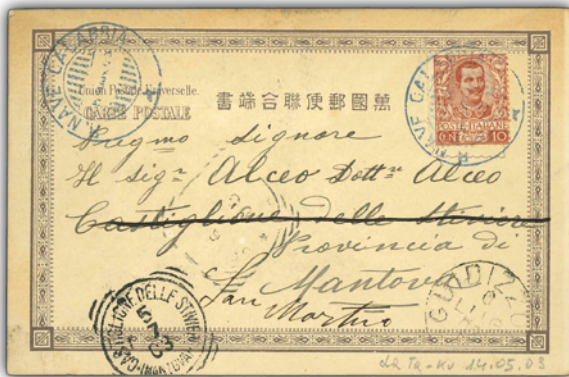 R. NAVE CALABRIA
R. NAVE CAL
Union Postale Universelle.
CARTE POSTALE
書端合聯便郵國萬
POSTE ITALIANE
CENT. 10
Pregmo Signore
Il Sigr Alceo Dottre Alceo
Castiglione delle Stiviere
Provincia di
Mantova
San Martino
CASTIGLIONE DELLE STIVIERE
(MANTOVA)
GUIDIZZO
da Ta-Ku 14.05.03